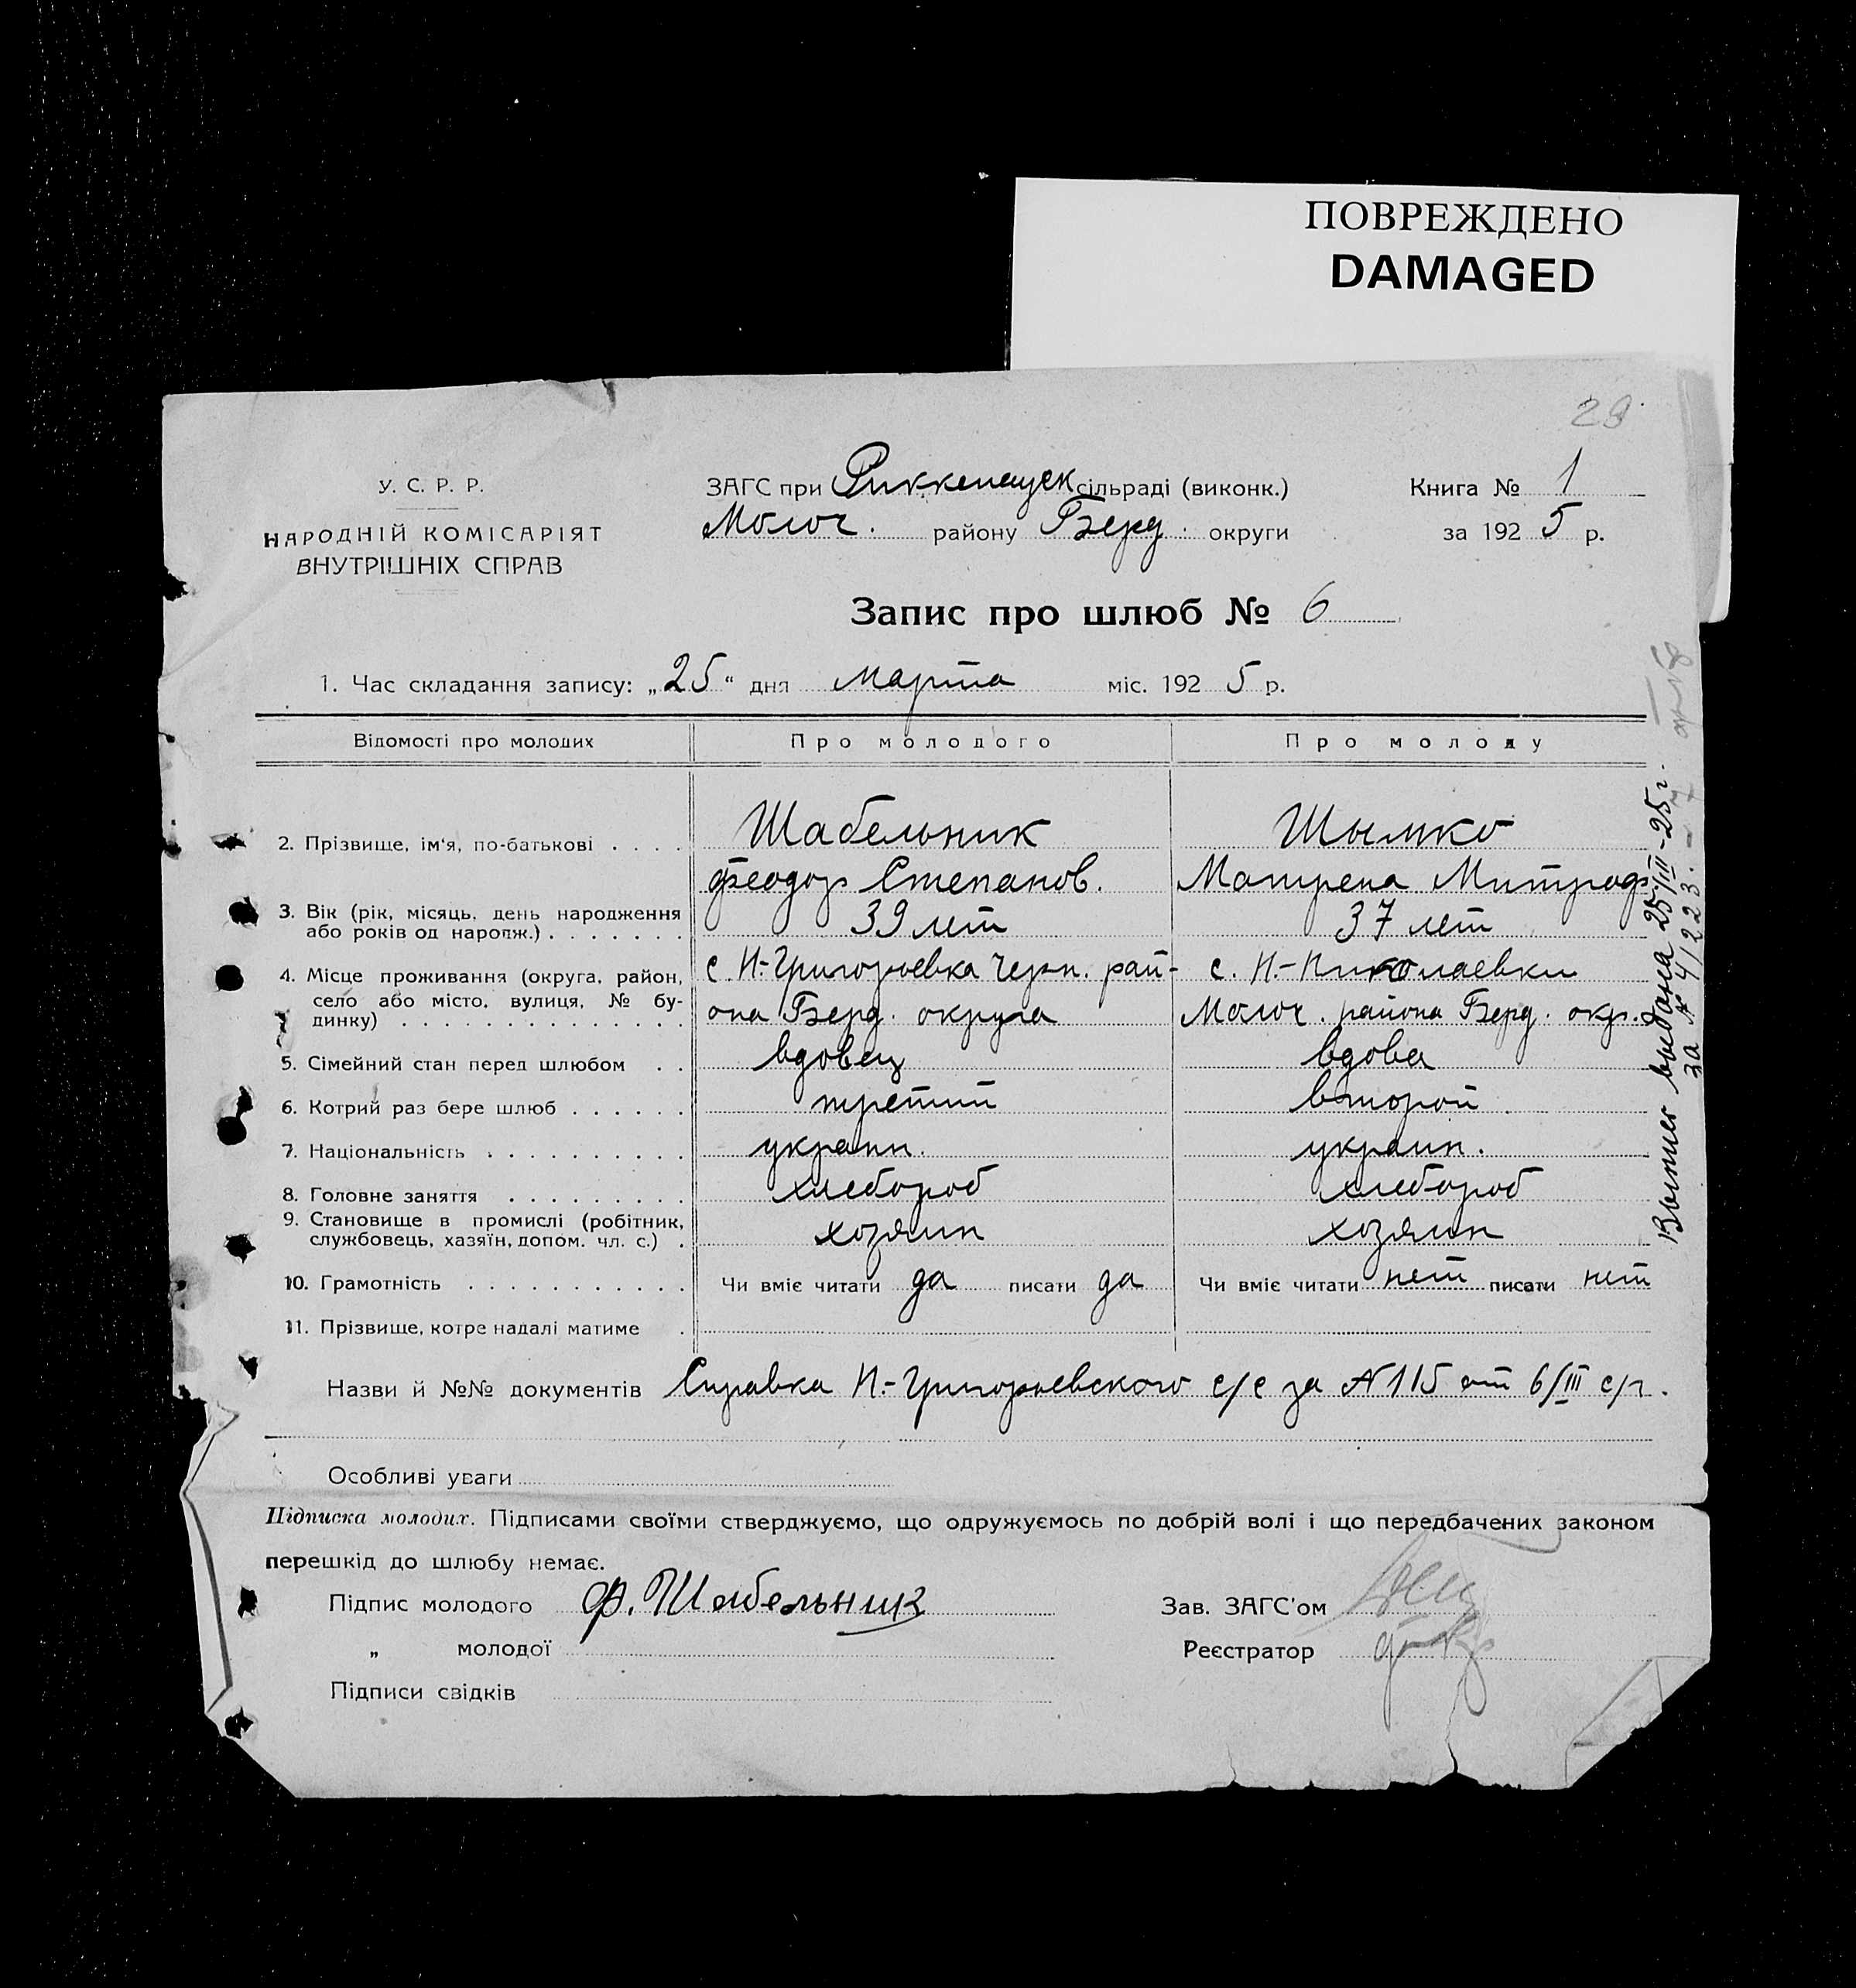 ПОВРЕЖДЕНО
DAMAGED
29
У. С. Р. Р.
НАРОДНІЙ КОМІСАРІЯТ
ВНУТРІШНІХ СПРАВ
ЗАГС при Риккенауск сільраді (виконк.)
Молоч. району Берд. округи
Книга № 1
за 1925 р.
Запис про шлюб № 6
1. Час складання запису: „25“ дня марта міс. 1925 р.
Відомості про молодих Про молодого Про молоду
2. Прізвище, ім‘я, по-батькові . . . . Шабельник Шымко
Феодор Степанов. Матрена Митроф.
3. Вік (рік, місяць, день народження
або років од народж.) . . . . . . . 39 лет 37 лет
4. Місце проживання (округа, район,
село або місто, вулиця, № бу-
динку) . . . . . . . . . . . . . .
с. Н.-Григорьевка Черн. рай- с. Н.-Николаевки
она Берд. округа Молоч. района Берд. окр.
5. Сімейний стан перед шлюбом . . вдовец вдова
6. Котрий раз бере шлюб . . . . . . третий второй
7. Національність . . . . . . . . . . украин. украин.
8. Головне заняття . . . . . . . . . хлебороб хлебороб
9. Становище в промислі (робітник,
службовець, хазяїн, допом. чл. с.) . хозяин хозяин
10. Грамотність . . . . . . . . . . . Чи вміє читати да писати да Чи вміє читати нет писати нет
11. Прізвище, котре надалі матиме .
Назви й №№ документів Справка Н.-Григорьевского с/с за №115 от 6/III с/г.
Особливі уваги
Підписка молодих. Підписами своїми стверджуємо, що одружуємось по добрій волі і що передбачених законом
перешкід до шлюбу немає.
Підпис молодого Ф. Шабельник
„ молодої
Підписи свідків
Зав. ЗАГС'ом
Реєстратор
Выпись выдана 25/III-25 г.
за № 4/223.